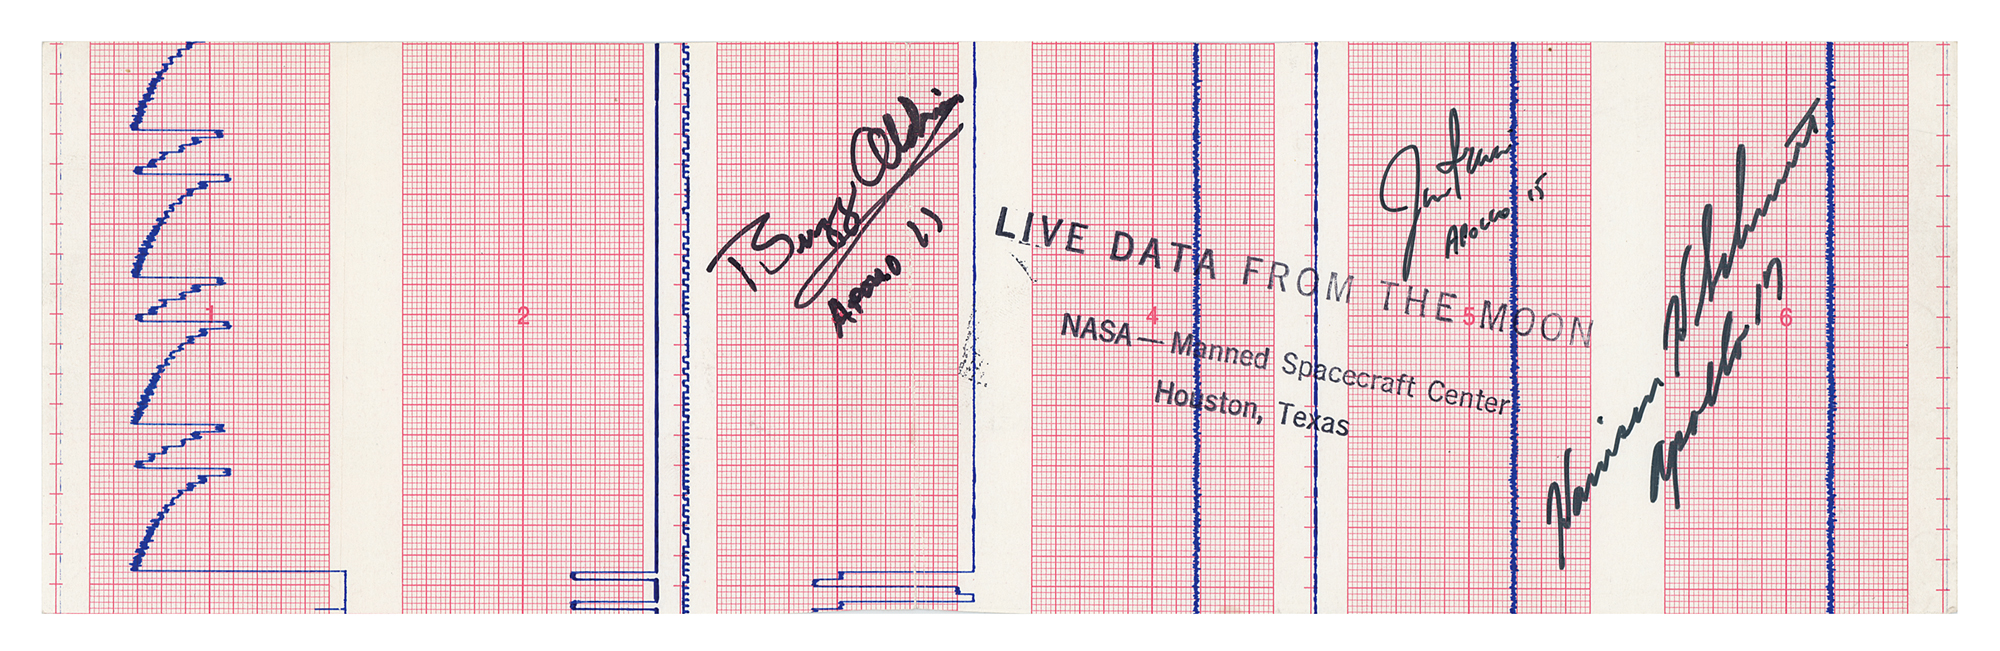 Buzz Aldrin
Apollo 11
Jim Irwin
Apollo 15
Harrison H Schmitt
Apollo 17
LIVE DATA FROM THE MOON
NASA — Manned Spacecraft Center
Houston, Texas
1
2
4
5
6